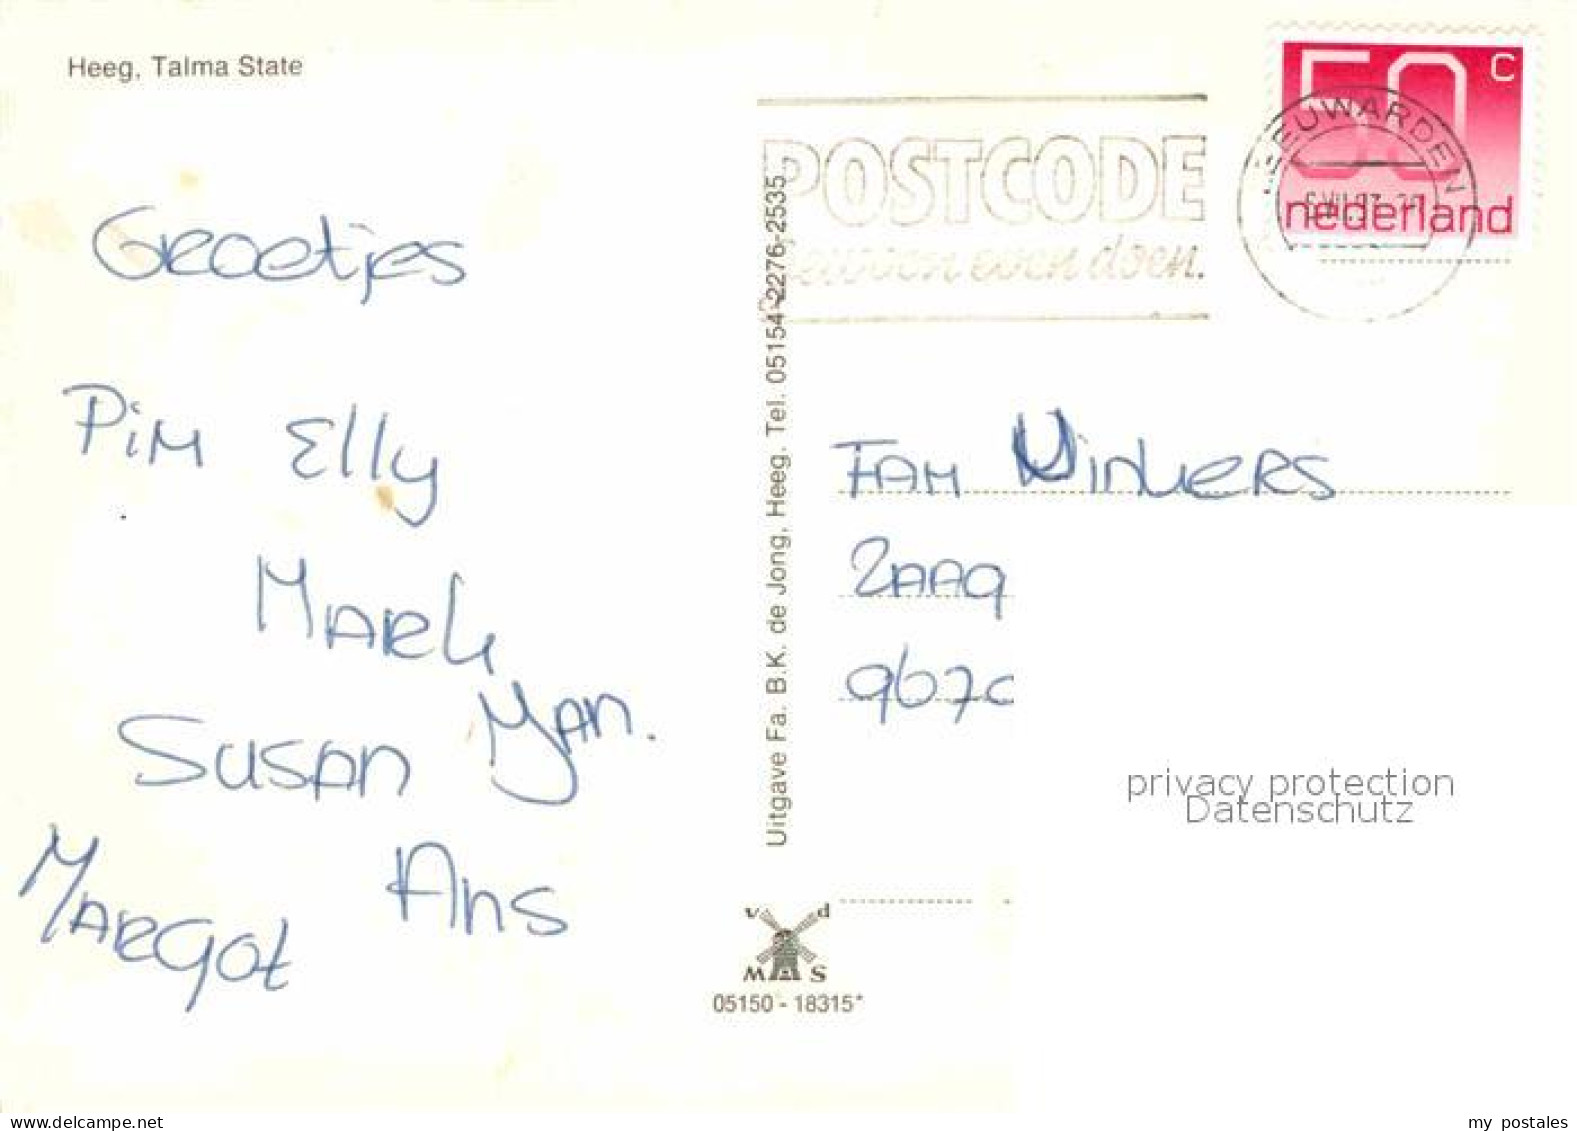 Heeg, Talma State
Groetjes
Pim Elly
Mark
Susan Jan.
Margot Ans
Uitgave Fa. B.K. de Jong, Heeg. Tel. 05154-2276-2535
v d
M A S
05150 - 18315*
POSTCODE
even doen.
50 c
nederland
LEEUWARDEN
Fam Winkers
2AAQ
9670
privacy protection
Datenschutz
www.delcampe.net
my postales